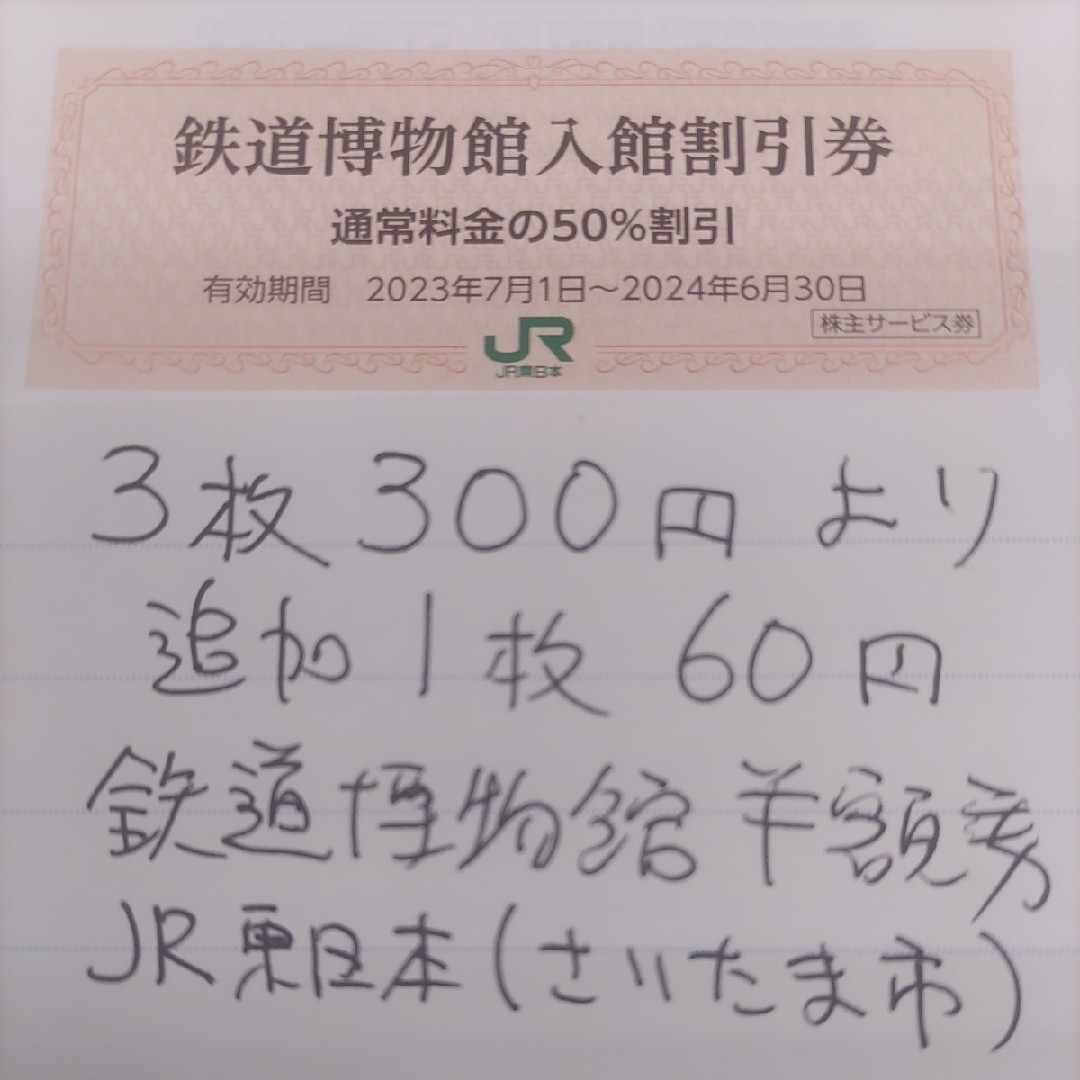 鉄道博物館入館割引券
通常料金の50%割引
有効期間 2023年7月1日～2024年6月30日
株主サービス券
JR
JR東日本
3枚 300円 より
追加 1枚 60円
鉄道博物館 半額券
JR東日本(さいたま市)